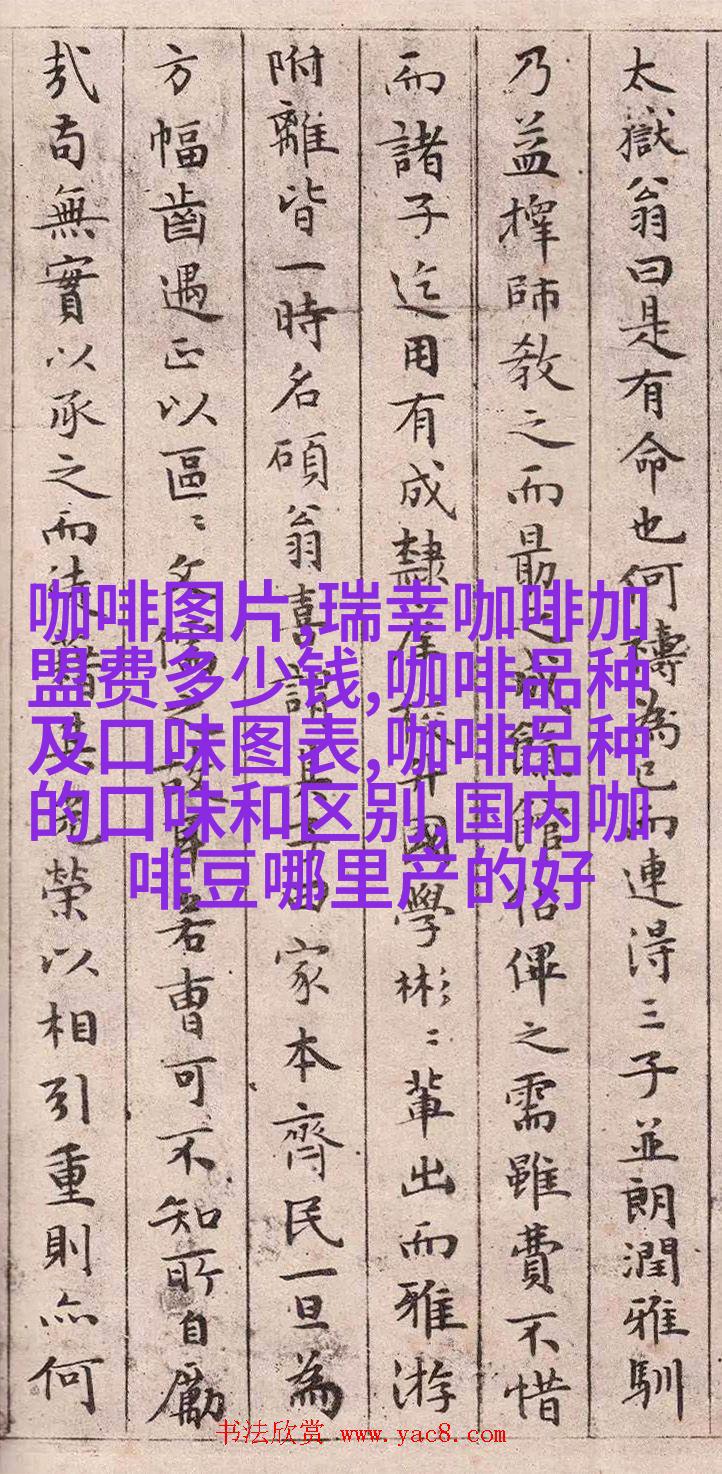 太獄翁曰是有命也何為已而連得三子並朗潤雅馴
乃益擇師教之而之成館俾之需雖費不惜
而諸子迄用有成隸國學彬〻輩出而雅游
附離皆一時名碩翁喜謂其子曰家本齊民一旦為
方幅齒遇正以區〻文儒之故耳若曹可不知所自勵
哉苟無實以承之而徒藉其榮以相引重則亦何
咖啡图片,瑞幸咖啡加
盟费多少钱,咖啡品种
及口味图表,咖啡品种
的口味和区别,国内咖
啡豆哪里产的好
书法欣赏 www.yac8.com